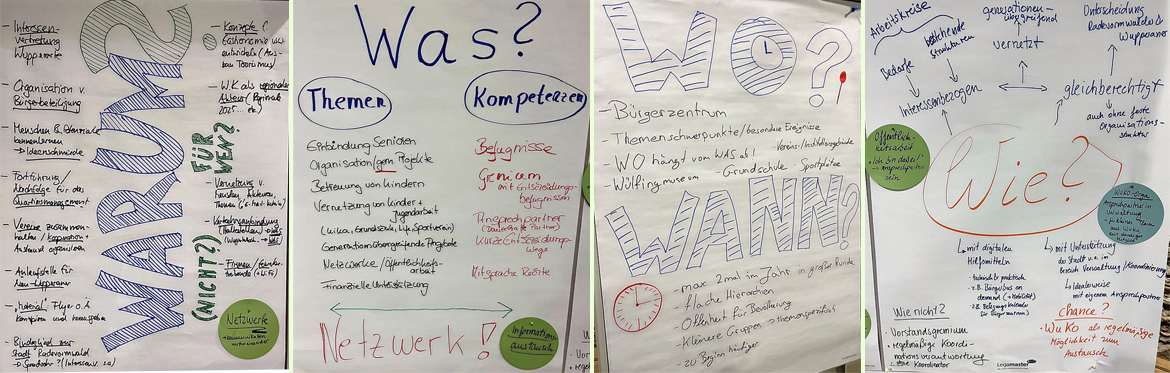 WARUM?
(NICHT?)
FÜR
WEN?
- Interessen-
vertretung
Wupperorte
- Organisation v.
Bürgerbeteiligung
kennenlernen
→ Ideenschmiede
- Fortführung/
Nachfolge für das
Quartiersmanagement
- Vereine zusammen-
halten / Kooperation +
Austausch organisieren
- Anlaufstelle für
Neu-Wupperaner
- "material" Flyer o.Ä.
- Bindeglied zur
Stadt Radevormwald
- Konzepte f.
Gastronomie
entwickeln (Aus-
bau Tourismus)
- WK als regionaler
Akteur (Regionale
2025... etc.)
- Vernetzung v.
- Verkehrsanbindung
- Firmen/
Netzwerk
Was?
Themen
Einbindung Senioren
Organisation/gem. Projekte
Betreuung von Kindern
Vernetzung von Kinder +
Jugendarbeit
Generationsübergreifende Angebote
Netzwerke/Öffentlichkeits-
arbeit
Finanzielle Unterstützung
Kompetenzen
Befugnisse
Gremium
mit Entscheidungs-
befugnissen
Ansprechpartner
(Dauerhafte Partner)
Kurze Entscheidungs-
wege
Mitsprache Rechte
Netzwerk!
Informations-
austausch
WO?
- Bürgerzentrum
- Themenschwerpunkte/besondere Ereignisse
- WO hängt vom WAS ab! - Vereins-/Institutionsgebäude
- Wülfingmuseum - Grundschule - Sportplätze
WANN?
- max 2mal im Jahr in großer Runde
- flache Hierarchien
- Offenheit für Bevölkerung
- Kleinere Gruppen → themenspezifisch
- zu Beginn häufiger
Arbeitskreise
bestehende
Strukturen
Bedarfe
Interessenbezogen
generationen-
übergreifend
vernetzt
Unterscheidung
Radevormwalder &
Wupperaner
gleichberechtigt
auch ohne feste
Organisations-
struktur
Öffentlich-
keitsarbeit
"Ich bin dabei!"
→ Ansprechpartner
sein
Wie?
Ansprechpartner in
Verwaltung
↳ mit digitalen
Hilfsmitteln
- z.B. Bürgerbus on
demand (→ Mobilität)
↳ mit Unterstützung
der Stadt v.a. im
Bereich Verwaltung/Koordinierung
↳ Idealerweise
mit eigenem Ansprechpartner
Wie nicht?
- Vorstandsgremium
- regelmäßige Koordi-
nationsverantwortung
ohne Koordinator
Chance?
- WuKo als regelmäßige
Möglichkeit zum
Austausch
Legamaster